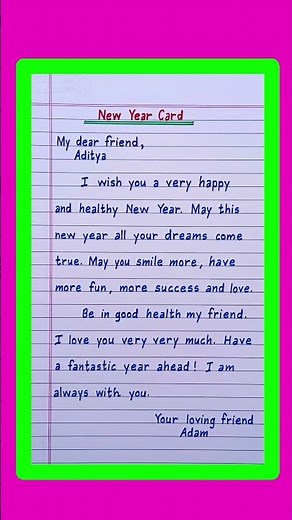 New Year Card
My dear friend,
Aditya
I wish you a very happy
and healthy New Year. May this
new year all your dreams come
true. May you smile more, have
more fun, more success and love.
Be in good health my friend.
I love you very very much. Have
a fantastic year ahead! I am
always with you.
Your loving friend
Adam